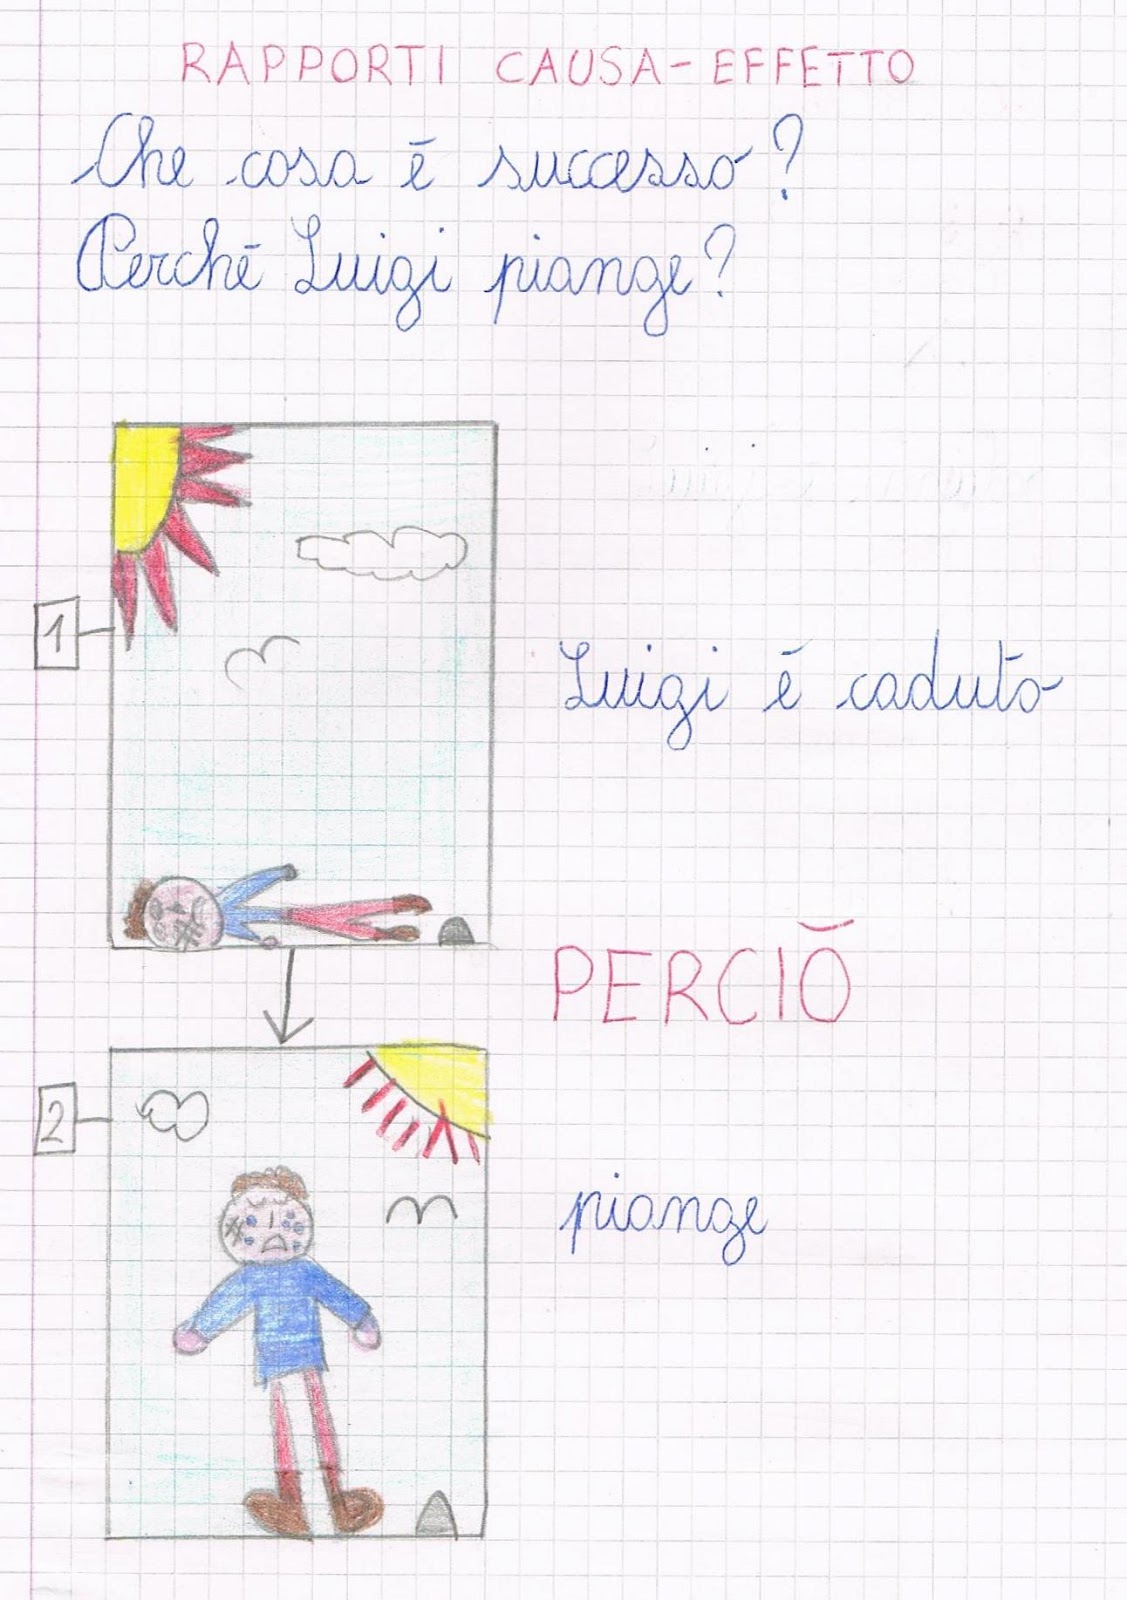 RAPPORTI CAUSA-EFFETTO
Che cosa è successo?
Perchè Luigi piange?
1
Luigi è caduto
PERCIÒ
2
piange